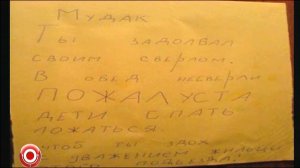 Мудак
Ты задолбал
своим сверлом.
В обед несверли
ПОЖАЛУСТА
дети спать
ложаться.
чтоб ты здох
уважением жильцы
подъезда!